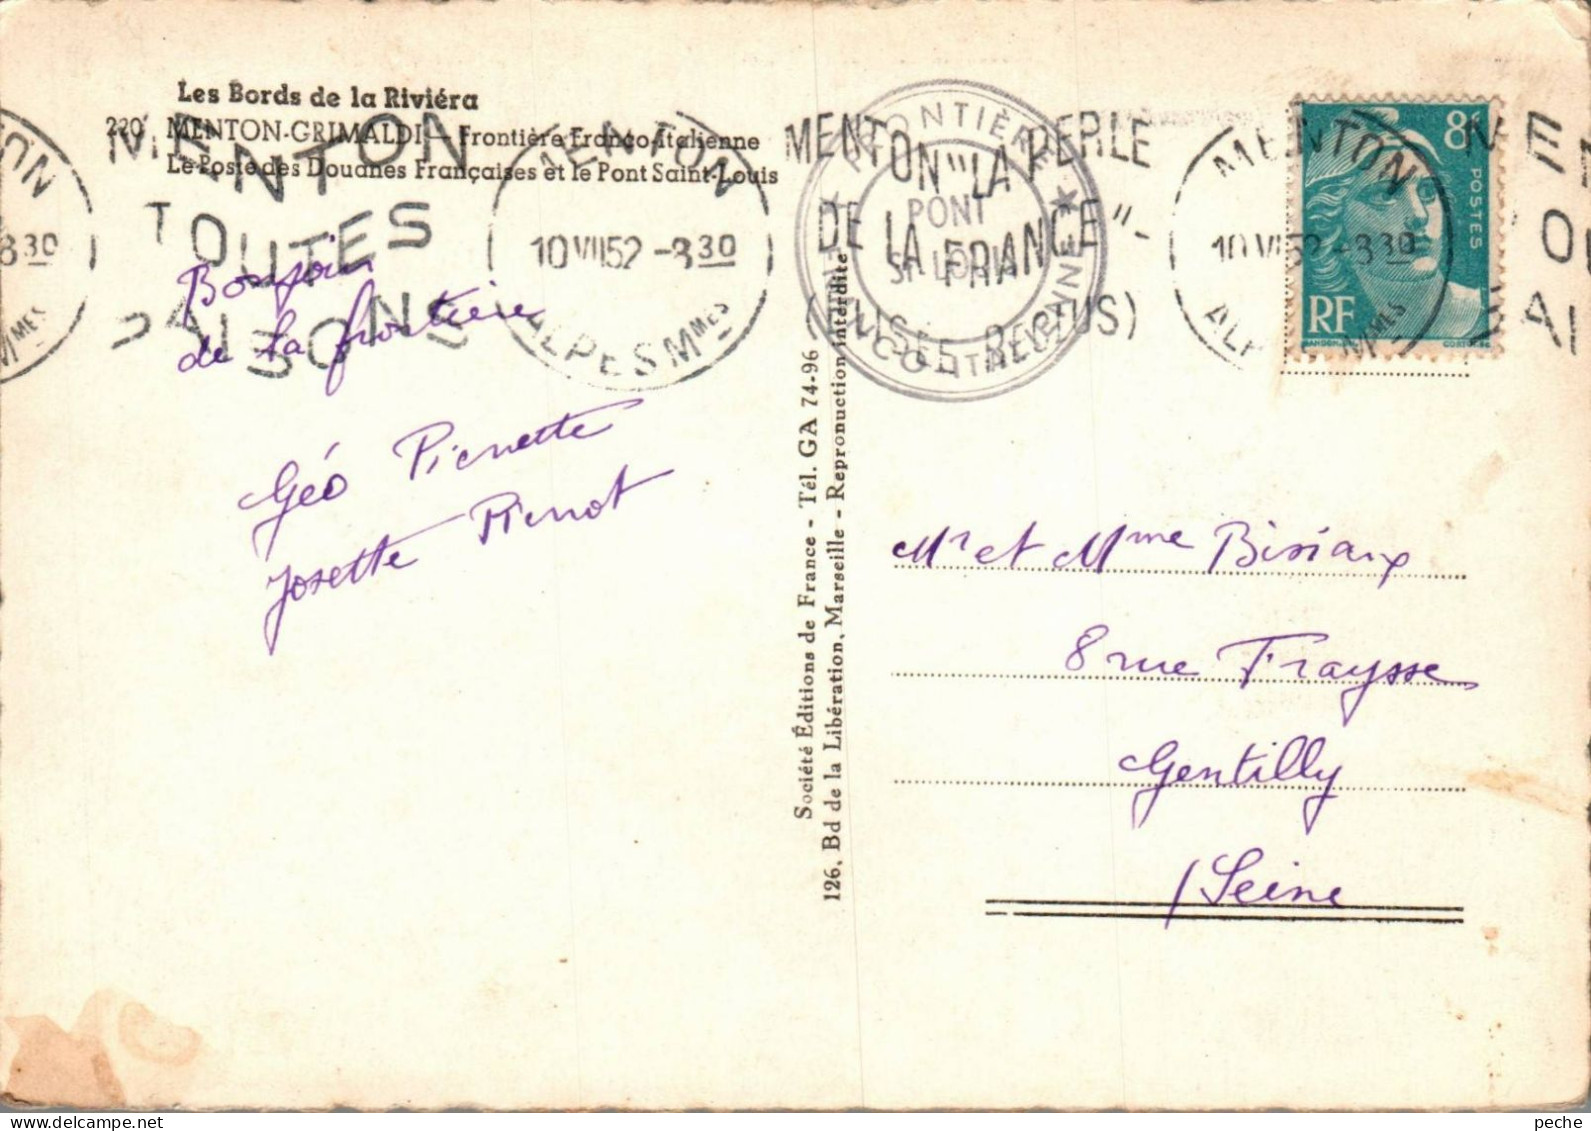 Les Bords de la Riviéra
220 MENTON-GRIMALDI — Frontière Franco-Italienne
Le Poste des Douanes Françaises et le Pont Saint-Louis
MENTON
TOUTES
SAISONS
MENTON
10 VII 52 -8 30
ALPES Mmes
MENTON "LA PERLE
DE LA FRANCE"-
(ELISÉE RECLUS)
FRONTIÈRE
PONT
St LOUIS
FRANCO-ITALIENNE
MENTON
10 VII 52 -8 30
8f
POSTES
RF
Bonjour
de la frontière
Géo Pierrette
Josette Pierrot
Société Éditions de France - Tél. GA 74-96
126, Bd de la Libération, Marseille - Repronuction interdite
Mr et Mme Bisiaux
8 rue Fraysse
Gentilly
/Seine
peche